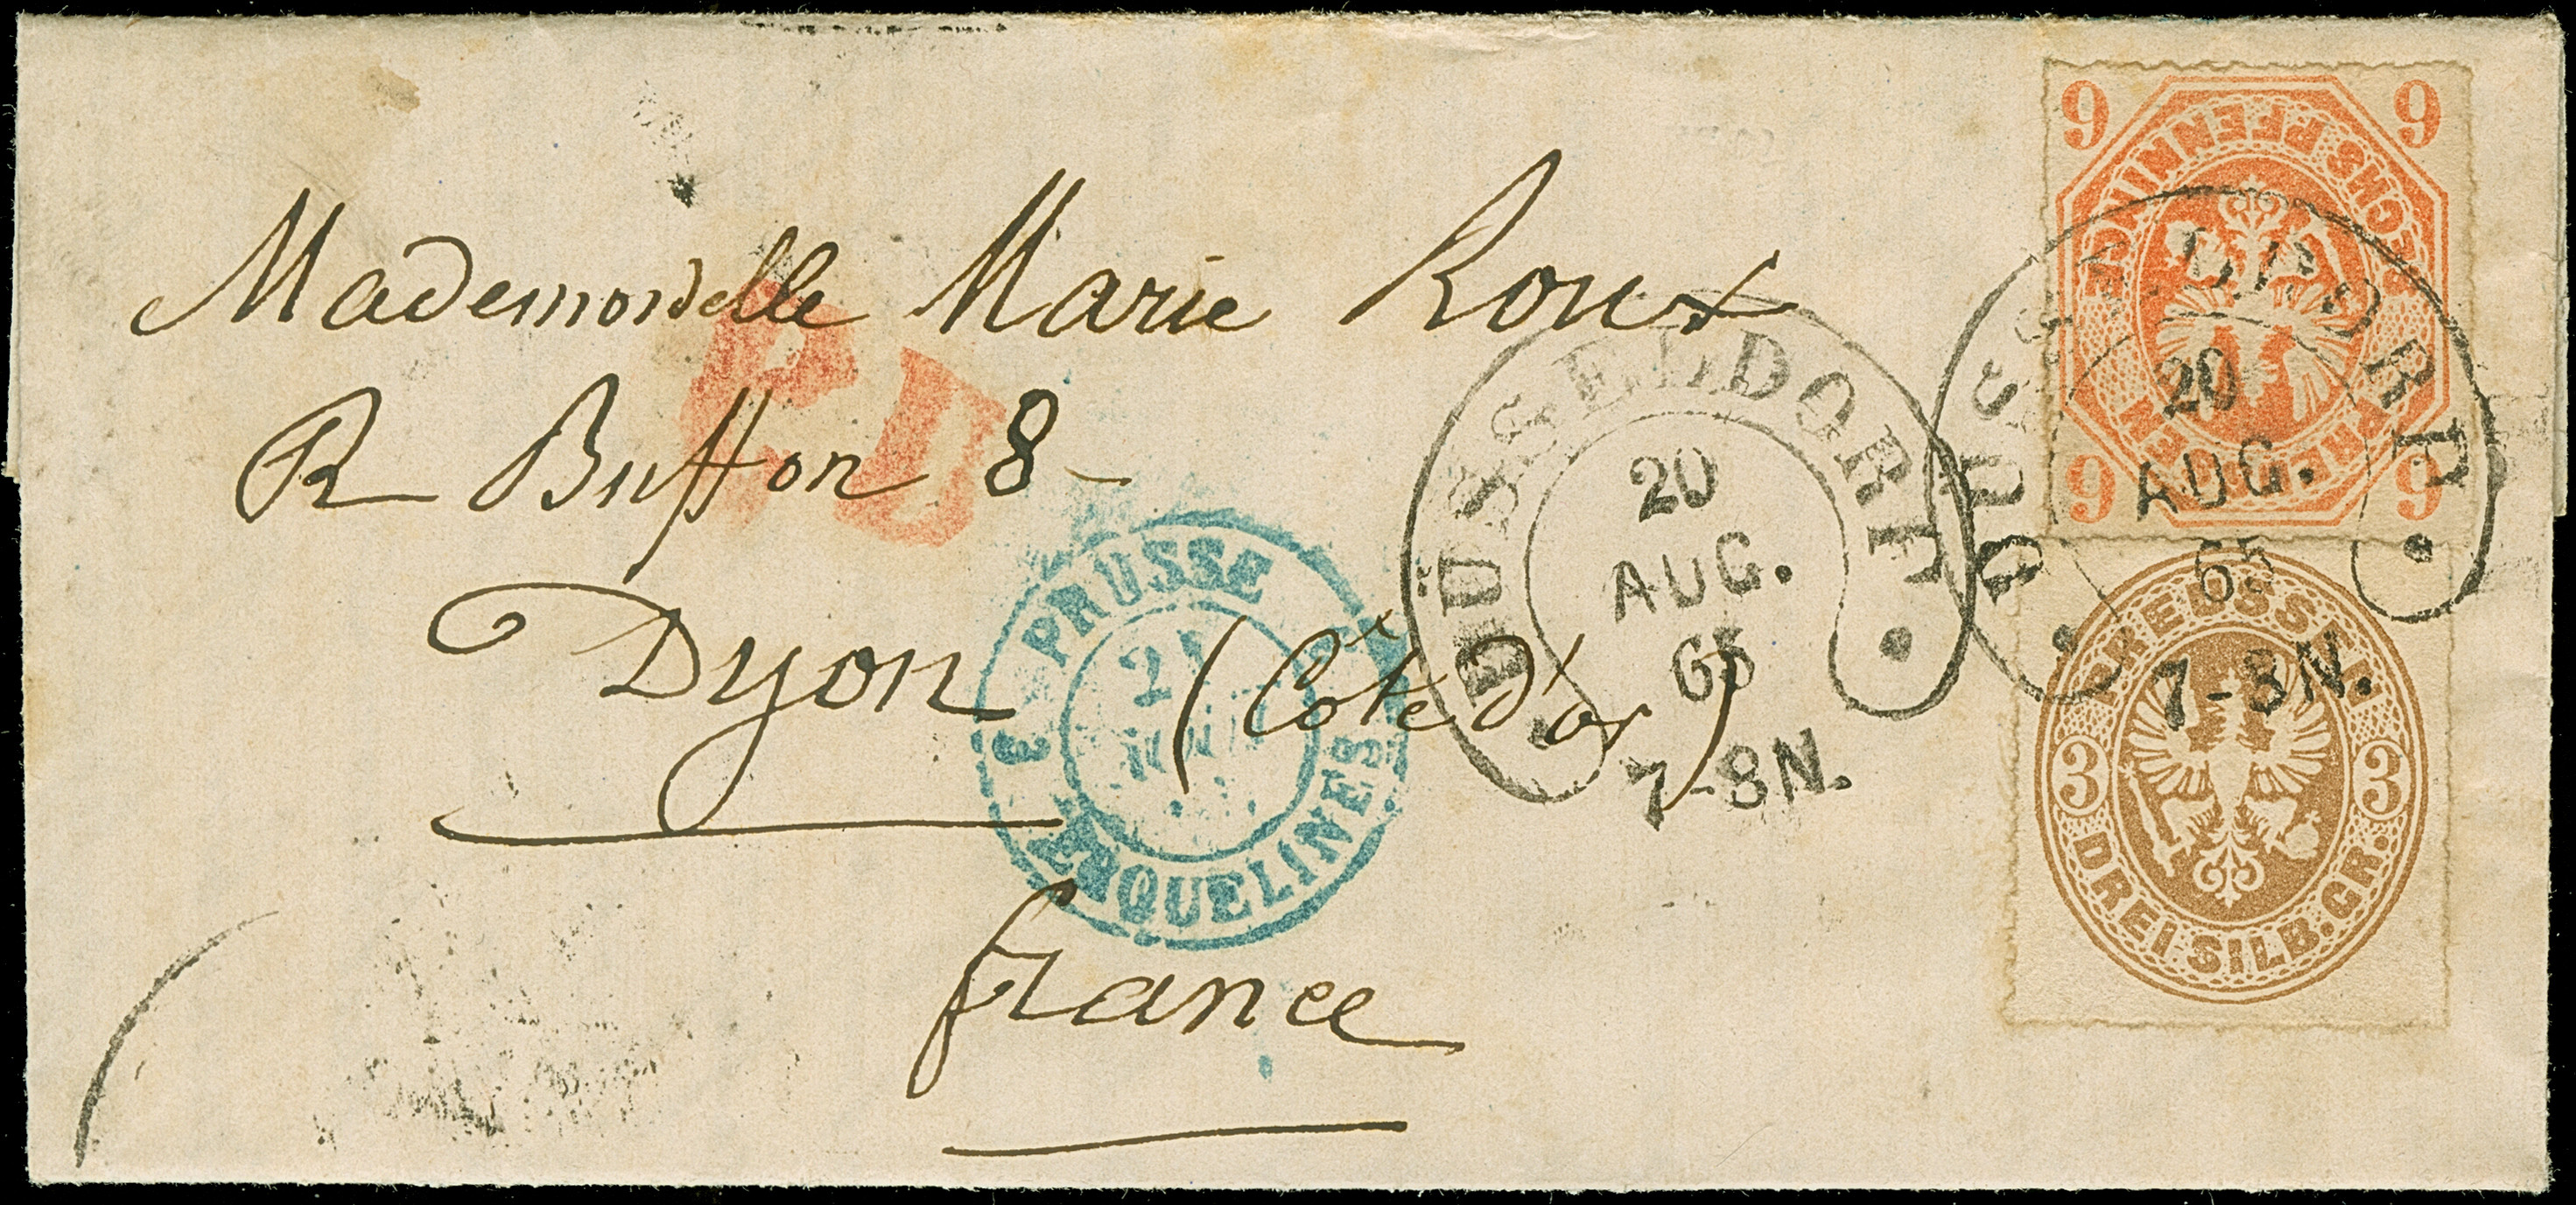 Mademoiselle Marie Roux
R Buffon 8
Dyon (Côte d'or)
france
P.D.
PRUSSE
3 ERQUELINES 3
21
DÜSSELDORF
20
AUG.
65
7-8N.
DÜSSELDORF
20
AUG.
65
7-8N.
PREUSSEN
SECHS PFENNINGE
6 6
6 6
PREUSSEN
3 3
DREI SILB.GR.